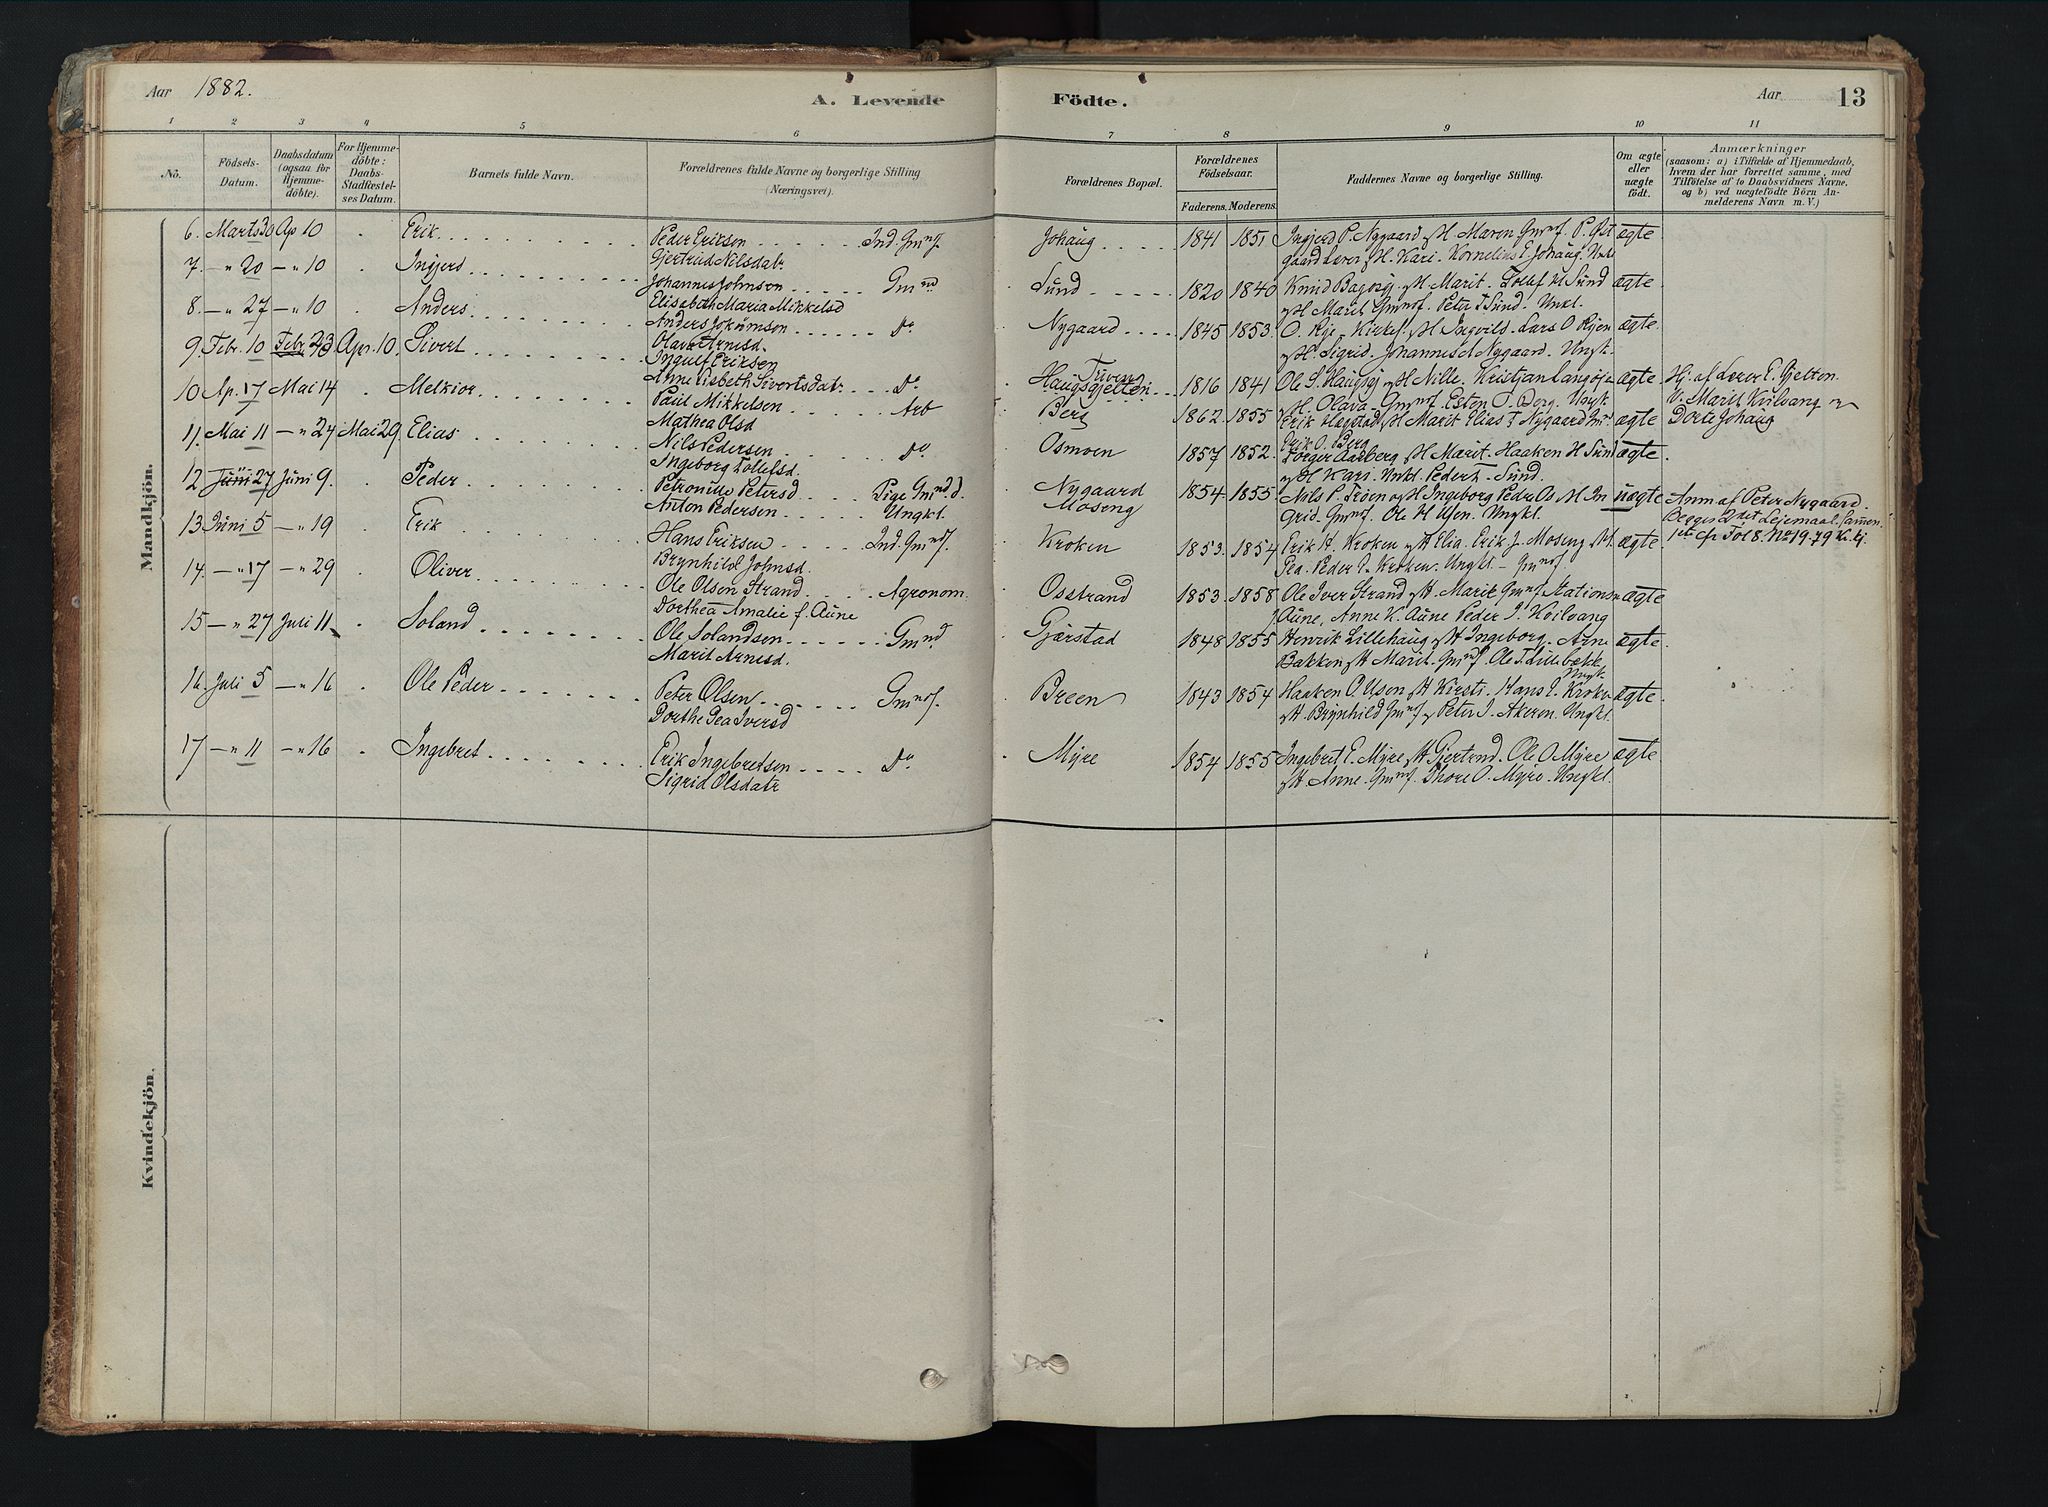 Aar 1882.
A. Levende
Födte.
Aar
13
1 2 3 4 5 6 7 8 9 10 11
No.
Födsels-Datum.
Daabsdatum (ogsaa for Hjemme-döbte).
For Hjemme-döbte: Daabs-Stadfæstel-ses Datum.
Barnets fulde Navn.
Forældrenes fulde Navne og borgerlige Stilling (Næringsvei).
Forældrenes Bopæl.
Forældrenes Födselsaar.
Faderens. Moderens.
Faddernes Navne og borgerlige Stilling.
Om ægte eller uægte födt.
Anmærkninger
(saasom: a) i Tilfælde af Hjemmedaab,
hvem der har forrettet samme, med
Tilföielse af to Daabsvidners Navne,
og b) ved uægtefödte Börn An-
melderens Navn m. V.)
Mandkjön.
6. Marts 30 Ap 10 Erik
Peder Eriksen Ind. Gmnf.
Gjertrud Nilsdatr
Johaug 1841 1851 Ingjerd P. Nygaard M Maren Gmnf. P. Øst
gaard Lærer M. Kari. Kornelius E Johaug. Unk
ægte
7. — " 20 — " 10 Ingjerd
Johannes Johnsen Gmnd
Elisabeth Maria Mikkelsd
Sund 1820 1840 Knud M Marit. Tollef H Sund
M Marit Gmnf. Peter T Sund. Unkl.
ægte
8. — " 27 — " 10 Anders
Anders Jokumsen Do
Olava Arnesd.
Nygaard 1845 1853. O. Rye Kirkes. M Ingvild. Lars O Ryen
M. Sigrid. Johannes A Nygaard. Ungk.
ægte.
9 Febr. 10 Febr 23 Apr. 10. Sivert
Ingulf Eriksen
Anne Lisbeth Sivertsdatr Do
Tuven
Haugsgjelten 1816 1841 Ole S. Haugsgj M Nille. Kristjan
M. Olava Gmnf. Esten O. Berg. Ungk.
ægte
Hj. af Lærer E. Gjelten.
V. Marit Kulvang
Dorte Johaug
10 Ap. 17 Mai 14 Melkior
Paul Mikkelsen Arb
Mathea Olsd
Berg 1862. 1855 Erik Hagstad M Marit Elias T Nygaard
Erik O. Berg
ægte
11. Mai 11 — " 24 Mai 29. Elias
Nils Pedersen Do
Ingeborg Tollefsd.
Osmoen 1857 1852. Aasberg M Marit. Haaken H Sund
M Kari. Unkl. Peder T. Sund.
ægte.
12 Juni 27 Juni 9. Peder
Petronille Petersd Pige Gmnd d.
Anton Pedersen Ungkl.
Nygaard
Moseng 1854. 1855 Nils P. Trøen M Ingeborg Pedr Os M In
grid. Gmnf. Ole H Usen. Ungkl.
uægte
Anm af Peter Nygaard.
Begges 2det Lejemaal Samen.
1ste cfr Fol 8. No 19. 79
13 Juni 5 — " 19 Erik
Hans Eriksen Ind. Gmndf.
Brynhild Johnsd.
Kroken 1853. 1854 Erik H. Kroken M Elia. Erik J. Moseng M
Gea. Peder E. Kroken. Ungkl — Gmnf.
ægte.
14. — " 17 — " 29 Oliver
Ole Olsen Strand Agronom.
Dorthea Amalie f. Aune
Osstrand 1853. 1858 Ole Iver Strand M Marit Gmnf Stations
Aune, Anne K. Aune Peder J. Koilvang
ægte
15 — " 27 Juli 11 Soland
Ole Solandsen Gmnd.
Marit Arnesd.
Gjærstad 1848 1855 Henrik Lillehaug M Ingeborg. Arne
Bakken M Marit. Gmnf. Ole T. Lillebække
Ungk.
ægte.
16. Juli 5 — " 16 Ole Peder
Peter Olsen Gmnf.
Dorthe Gea Iversd
Breen 1843 1854 Haaken O. Usen M Kirsti. Hans E. Kroken
M. Brynhild Gmnf Peter I. Akeren. Ungkl.
ægte.
17 — " 11 — " 16 Ingebret
Erik Ingebretsen Do
Sigrid Olsdatr
Myre 1854 1855 Ingebret E. Myre M Gjertrud. Ole O Myre
M. Anne Gmnf. Thore O. Myre. Ungkl.
ægte
Kvindekjön.